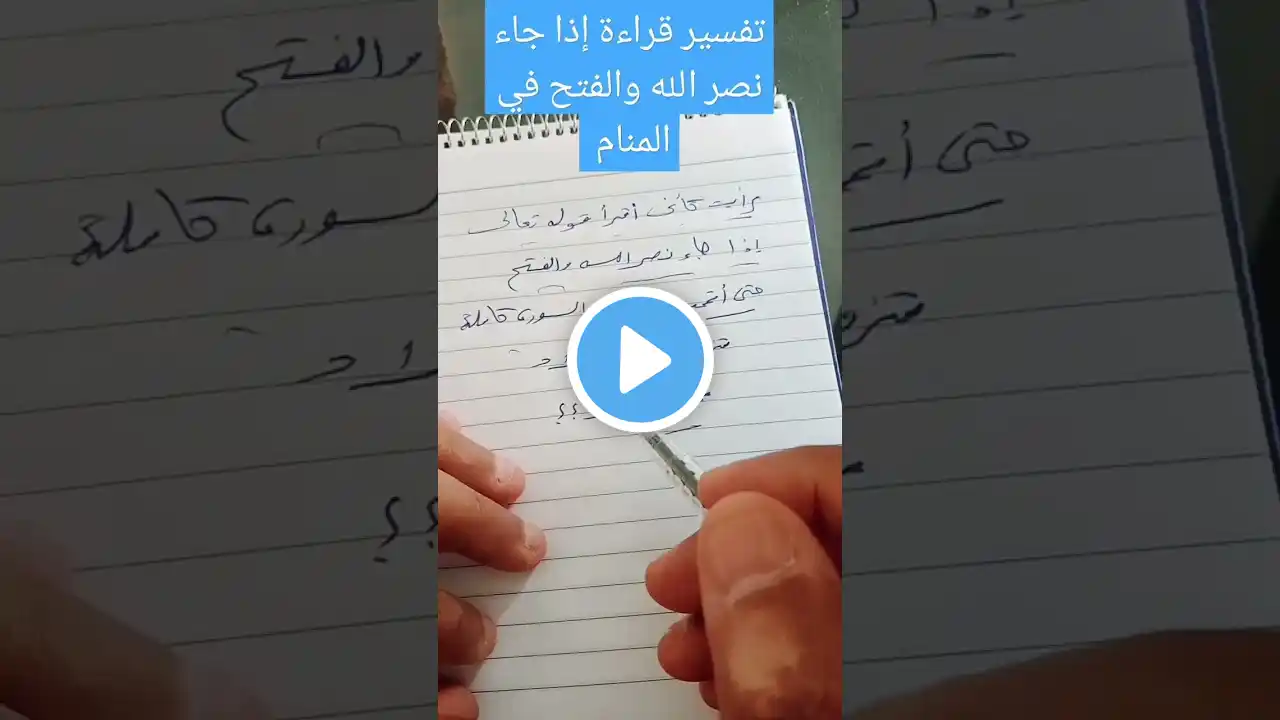 تفسير قراءة إذا جاء
نصر الله والفتح في
المنام
رأيت كأني أقرأ قوله تعالى
إذا جاء نصر الله والفتح
حتى أتممت السورة كاملة
؟؟